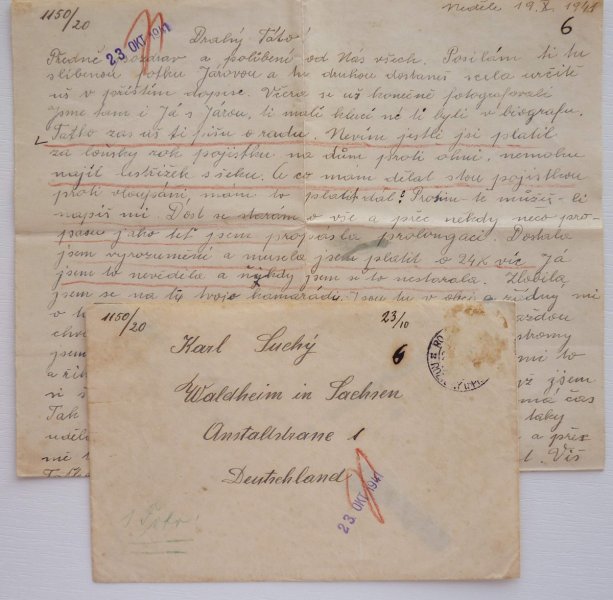 1150/20
Neděle 19. X. 1941
6
23. OKT. 1941
Drahý Táto!
Předně pozdrav a políbení od Nás všech. Posílám ti tu
slíbenou fotku Járovou a tu druhou dostaneš zcela určitě
už v příštím dopise. Včera se už konečně fotografovali
jsme tam i Já s Járou, ti malí kluci ne ti byli v biografu.
Tatko zas už ti píšu o radu. Nevím jestli jsi platil
za loňský rok pojistku na dům proti ohni, nemohu
najít ústřižek s šeku. A co mám dělat s tou pojistkou
proti vloupání, mám to platit dál? Prosím tě můžeš-li
napiš mi. Dost se starám o vše a přec někdy něco pro-
pasu jako teď jsem propásla prolongaci. Dostala
jsem vyrozumění a musela jsem platit o 24K víc. Já
jsem to nevěděla a nikdy jsem se o to nestarala. Zlobila
jsem se na ty tvoje kamarády. Jsou tu v obci a žádný mi
o
každou
stromy
jsem
mi to
jsem
má čas
Tak
taky
a přec
Víš
1150/20
23/10
6
Karl Suchý
Waldheim in Sachsen
Anstaltstrane 1
Deutschland
23. OKT. 1941
1 Foto